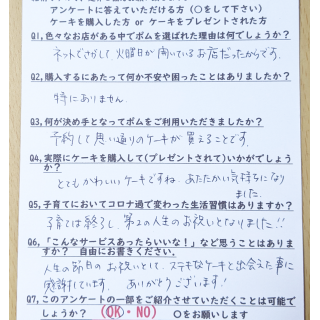 アンケートに答えていただける方（○をして下さい）
ケーキを購入した方 or ケーキをプレゼントされた方
Q1,色々なお店がある中でボムを選ばれた理由は何でしょうか?
ネットでさがして火曜日が開いているお店だったからです.
Q2,購入するにあたって何か不安や困ったことはありましたか?
特にありません.
Q3,何が決め手となってボムをご利用いただきましたか?
予約して思い通りのケーキが買えることです.
Q4,実際にケーキを購入して(プレゼントされて)いかがでしょうか?
とてもかわいいケーキですね. あたたかい気持ちになりました.
Q5,子育てにおいてコロナ過で変わった生活習慣はありますか?
子育ては終了し、第2の人生のお祝いとなりました!!
Q6,「こんなサービスあったらいいな!」など思うことはありますか? 自由にお書きください。
人生の節目のお祝いとして、ステキなケーキと出会えた事に
感謝しています. ありがとうございます!
Q7,このアンケートの一部をご紹介させていただくことは可能でしょうか? （OK・NO） ○をお願いします